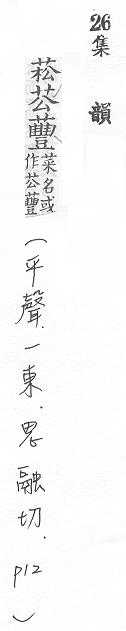 26集韻
菘蘴菜名或
作蘴
(平聲.一東.思融切.p12)